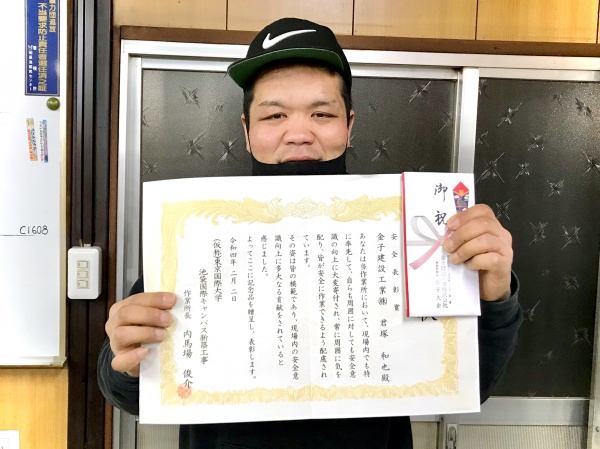 暴力団追放
不当要求防止責任者選任済之証
C1608
御祝
安全表彰賞
金子建設工業㈱ 君塚 和也殿
あなたは当作業所において、現場内でも特
に率先して、自らも周囲に対しても安全意
識の向上に大変寄付され、常に周囲に気を
配り、皆が安全に作業できるよう配慮され
ています。
その姿は皆の模範であり、現場内の安全意
識向上に多大なる貢献をされていると
感じました。
よってここに記念品を贈呈し、表彰します。
令和四年 二月 二日
(仮称)東京国際大学
池袋国際キャンパス新築工事
作業所長 内馬場 俊介